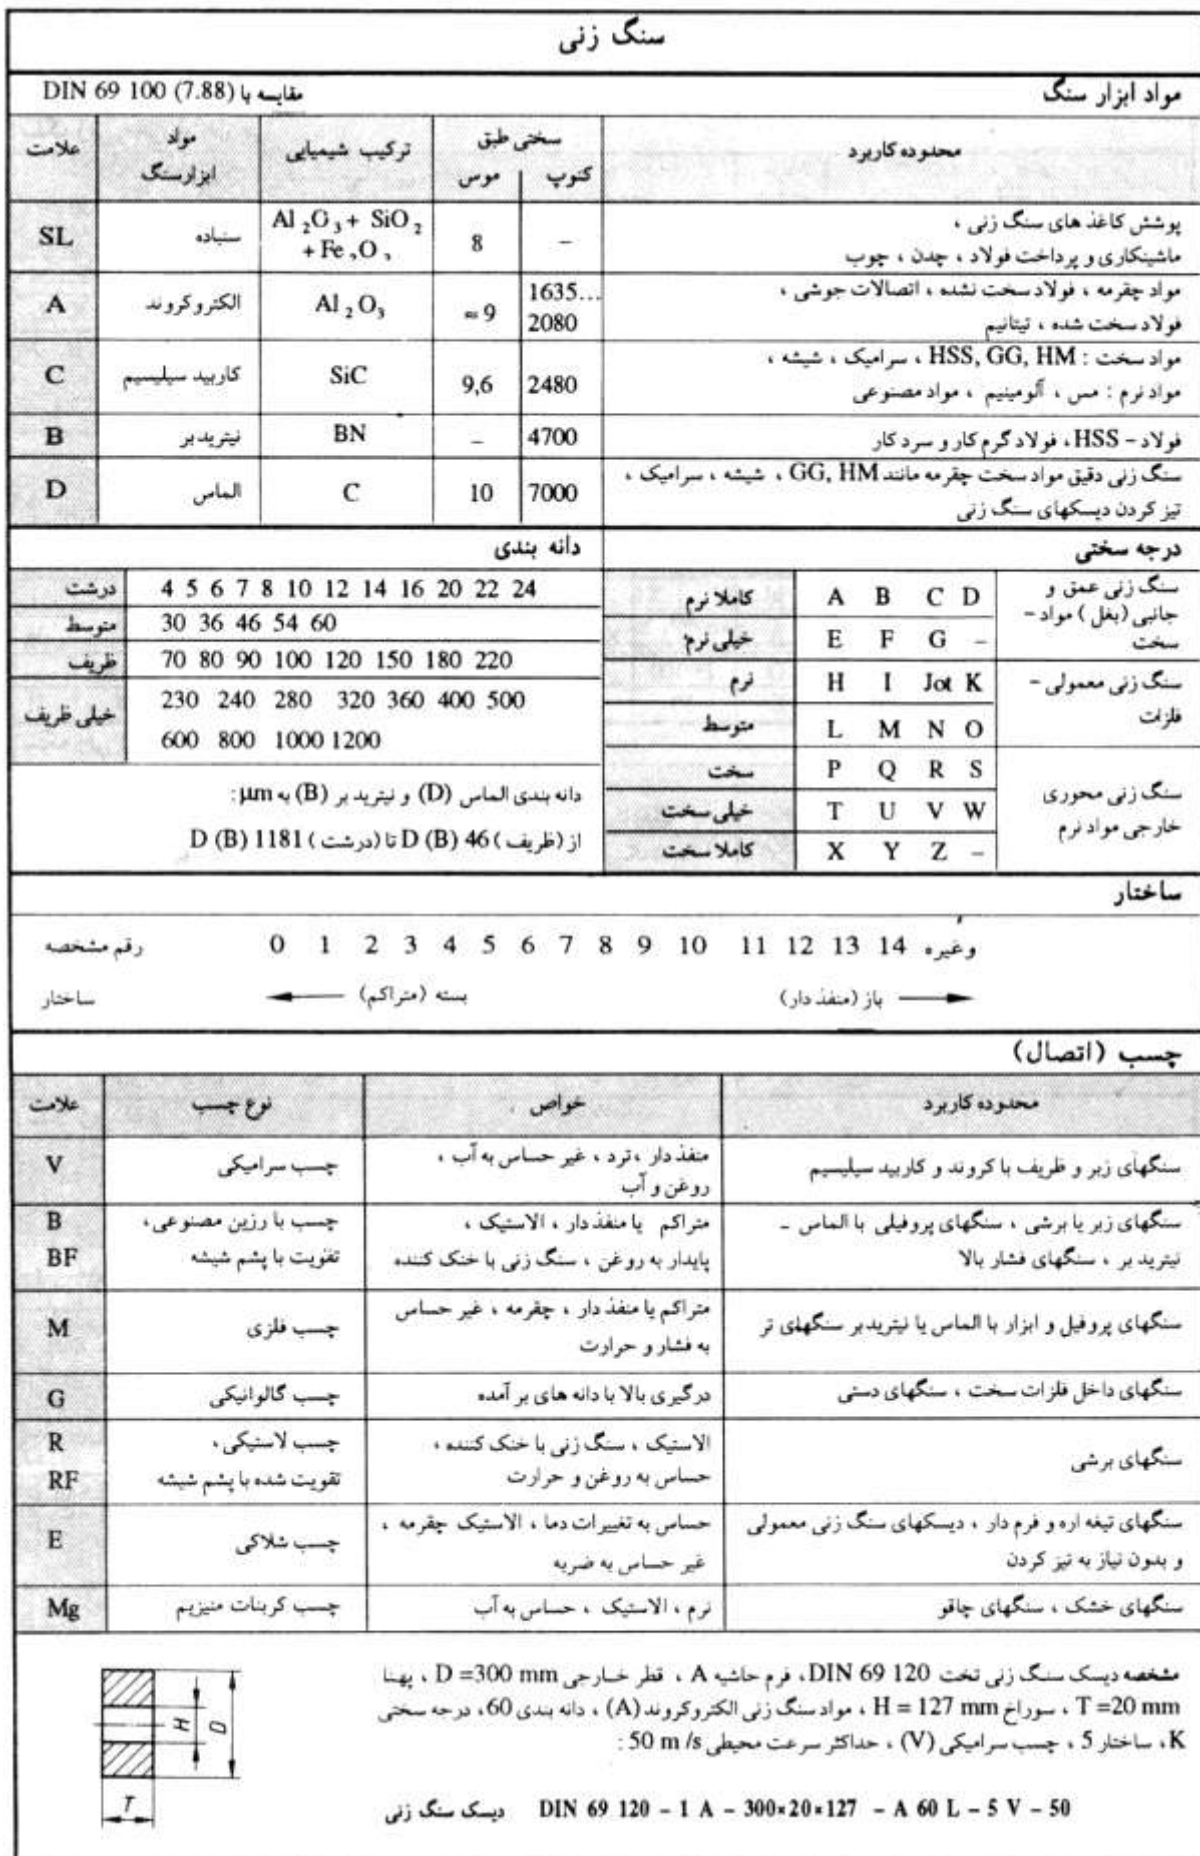 سنگ زنی
مواد ابزار سنگ
مقایسه با DIN 69 100 (7.88)
علامت | مواد ابزارسنگ | ترکیب شیمیایی | سختی طبق موس | کنوپ | محدوده کاربرد
SL | سنباده | Al2O3 + SiO2 + Fe2O3 | 8 | – | پوشش کاغذ های سنگ زنی ،
ماشینکاری و پرداخت فولاد ، چدن ، چوب
A | الکتروکروند | Al2O3 | ≈9 | 1635...2080 | مواد چقرمه ، فولاد سخت نشده ، اتصالات جوشی ،
فولاد سخت شده ، تیتانیم
C | کاربید سیلیسیم | SiC | 9,6 | 2480 | مواد سخت : HSS, GG, HM ، سرامیک ، شیشه ،
مواد نرم : مس ، آلومینیم ، مواد مصنوعی
B | نیتریدبر | BN | – | 4700 | فولاد – HSS، فولاد گرم کار و سرد کار
D | الماس | C | 10 | 7000 | سنگ زنی دقیق مواد سخت چقرمه مانند GG, HM ، شیشه ، سرامیک ،
تیز کردن دیسکهای سنگ زنی
دانه بندی
درشت | 4 5 6 7 8 10 12 14 16 20 22 24
متوسط | 30 36 46 54 60
ظریف | 70 80 90 100 120 150 180 220
خیلی ظریف | 230 240 280 320 360 400 500
600 800 1000 1200
دانه بندی الماس (D) و نیترید بر (B) به µm :
از (ظریف) D (B) 46 تا (درشت) D (B) 1181
درجه سختی
کاملا نرم | A B C D | سنگ زنی عمق و
جانبی (بغل) مواد –
سخت
خیلی نرم | E F G –
نرم | H I Jot K | سنگ زنی معمولی –
فلزات
متوسط | L M N O
سخت | P Q R S | سنگ زنی محوری
خارجی مواد نرم
خیلی سخت | T U V W
کاملا سخت | X Y Z –
ساختار
رقم مشخصه 0 1 2 3 4 5 6 7 8 9 10 11 12 13 14 وغیره
ساختار ← بسته (متراکم) باز (منفذ دار) →
چسب (اتصال)
علامت | نوع چسب | خواص | محدوده کاربرد
V | چسب سرامیکی | منفذ دار ،ترد ، غیر حساس به آب ،
روغن و آب | سنگهای زبر و ظریف با کروند و کاربید سیلیسیم
B
BF | چسب با رزین مصنوعی،
تقویت با پشم شیشه | متراکم یا منفذ دار ، الاستیک ،
پایدار به روغن ، سنگ زنی با خنک کننده | سنگهای زبر یا برشی ، سنگهای پروفیلی با الماس –
نیترید بر ، سنگهای فشار بالا
M | چسب فلزی | متراکم یا منفذ دار ، چقرمه ، غیر حساس
به فشار و حرارت | سنگهای پروفیل و ابزار با الماس یا نیتریدبر سنگهای تر
G | چسب گالوانیکی | درگیری بالا با دانه های بر آمده | سنگهای داخل فلزات سخت ، سنگهای دستی
R
RF | چسب لاستیکی،
تقویت شده با پشم شیشه | الاستیک ، سنگ زنی با خنک کننده ،
حساس به روغن و حرارت | سنگهای برشی
E | چسب شلاکی | حساس به تغییرات دما ، الاستیک چقرمه ،
غیر حساس به ضربه | سنگهای تیغه اره و فرم دار ، دیسکهای سنگ زنی معمولی
و بدون نیاز به تیز کردن
Mg | چسب کربنات منیزیم | نرم ، الاستیک ، حساس به آب | سنگهای خشک ، سنگهای چاقو
مشخصه دیسک سنگ زنی تخت DIN 69 120، فرم حاشیه A ، قطر خارجی D =300 mm ، پهنا
T =20 mm ، سوراخ H = 127 mm ، مواد سنگ زنی الکتروکروند (A) ، دانه بندی 60، درجه سختی
K، ساختار 5 ، چسب سرامیکی (V) ، حداکثر سرعت محیطی 50 m /s :
دیسک سنگ زنی DIN 69 120 – 1 A – 300×20×127 – A 60 L – 5 V – 50
H
D
T